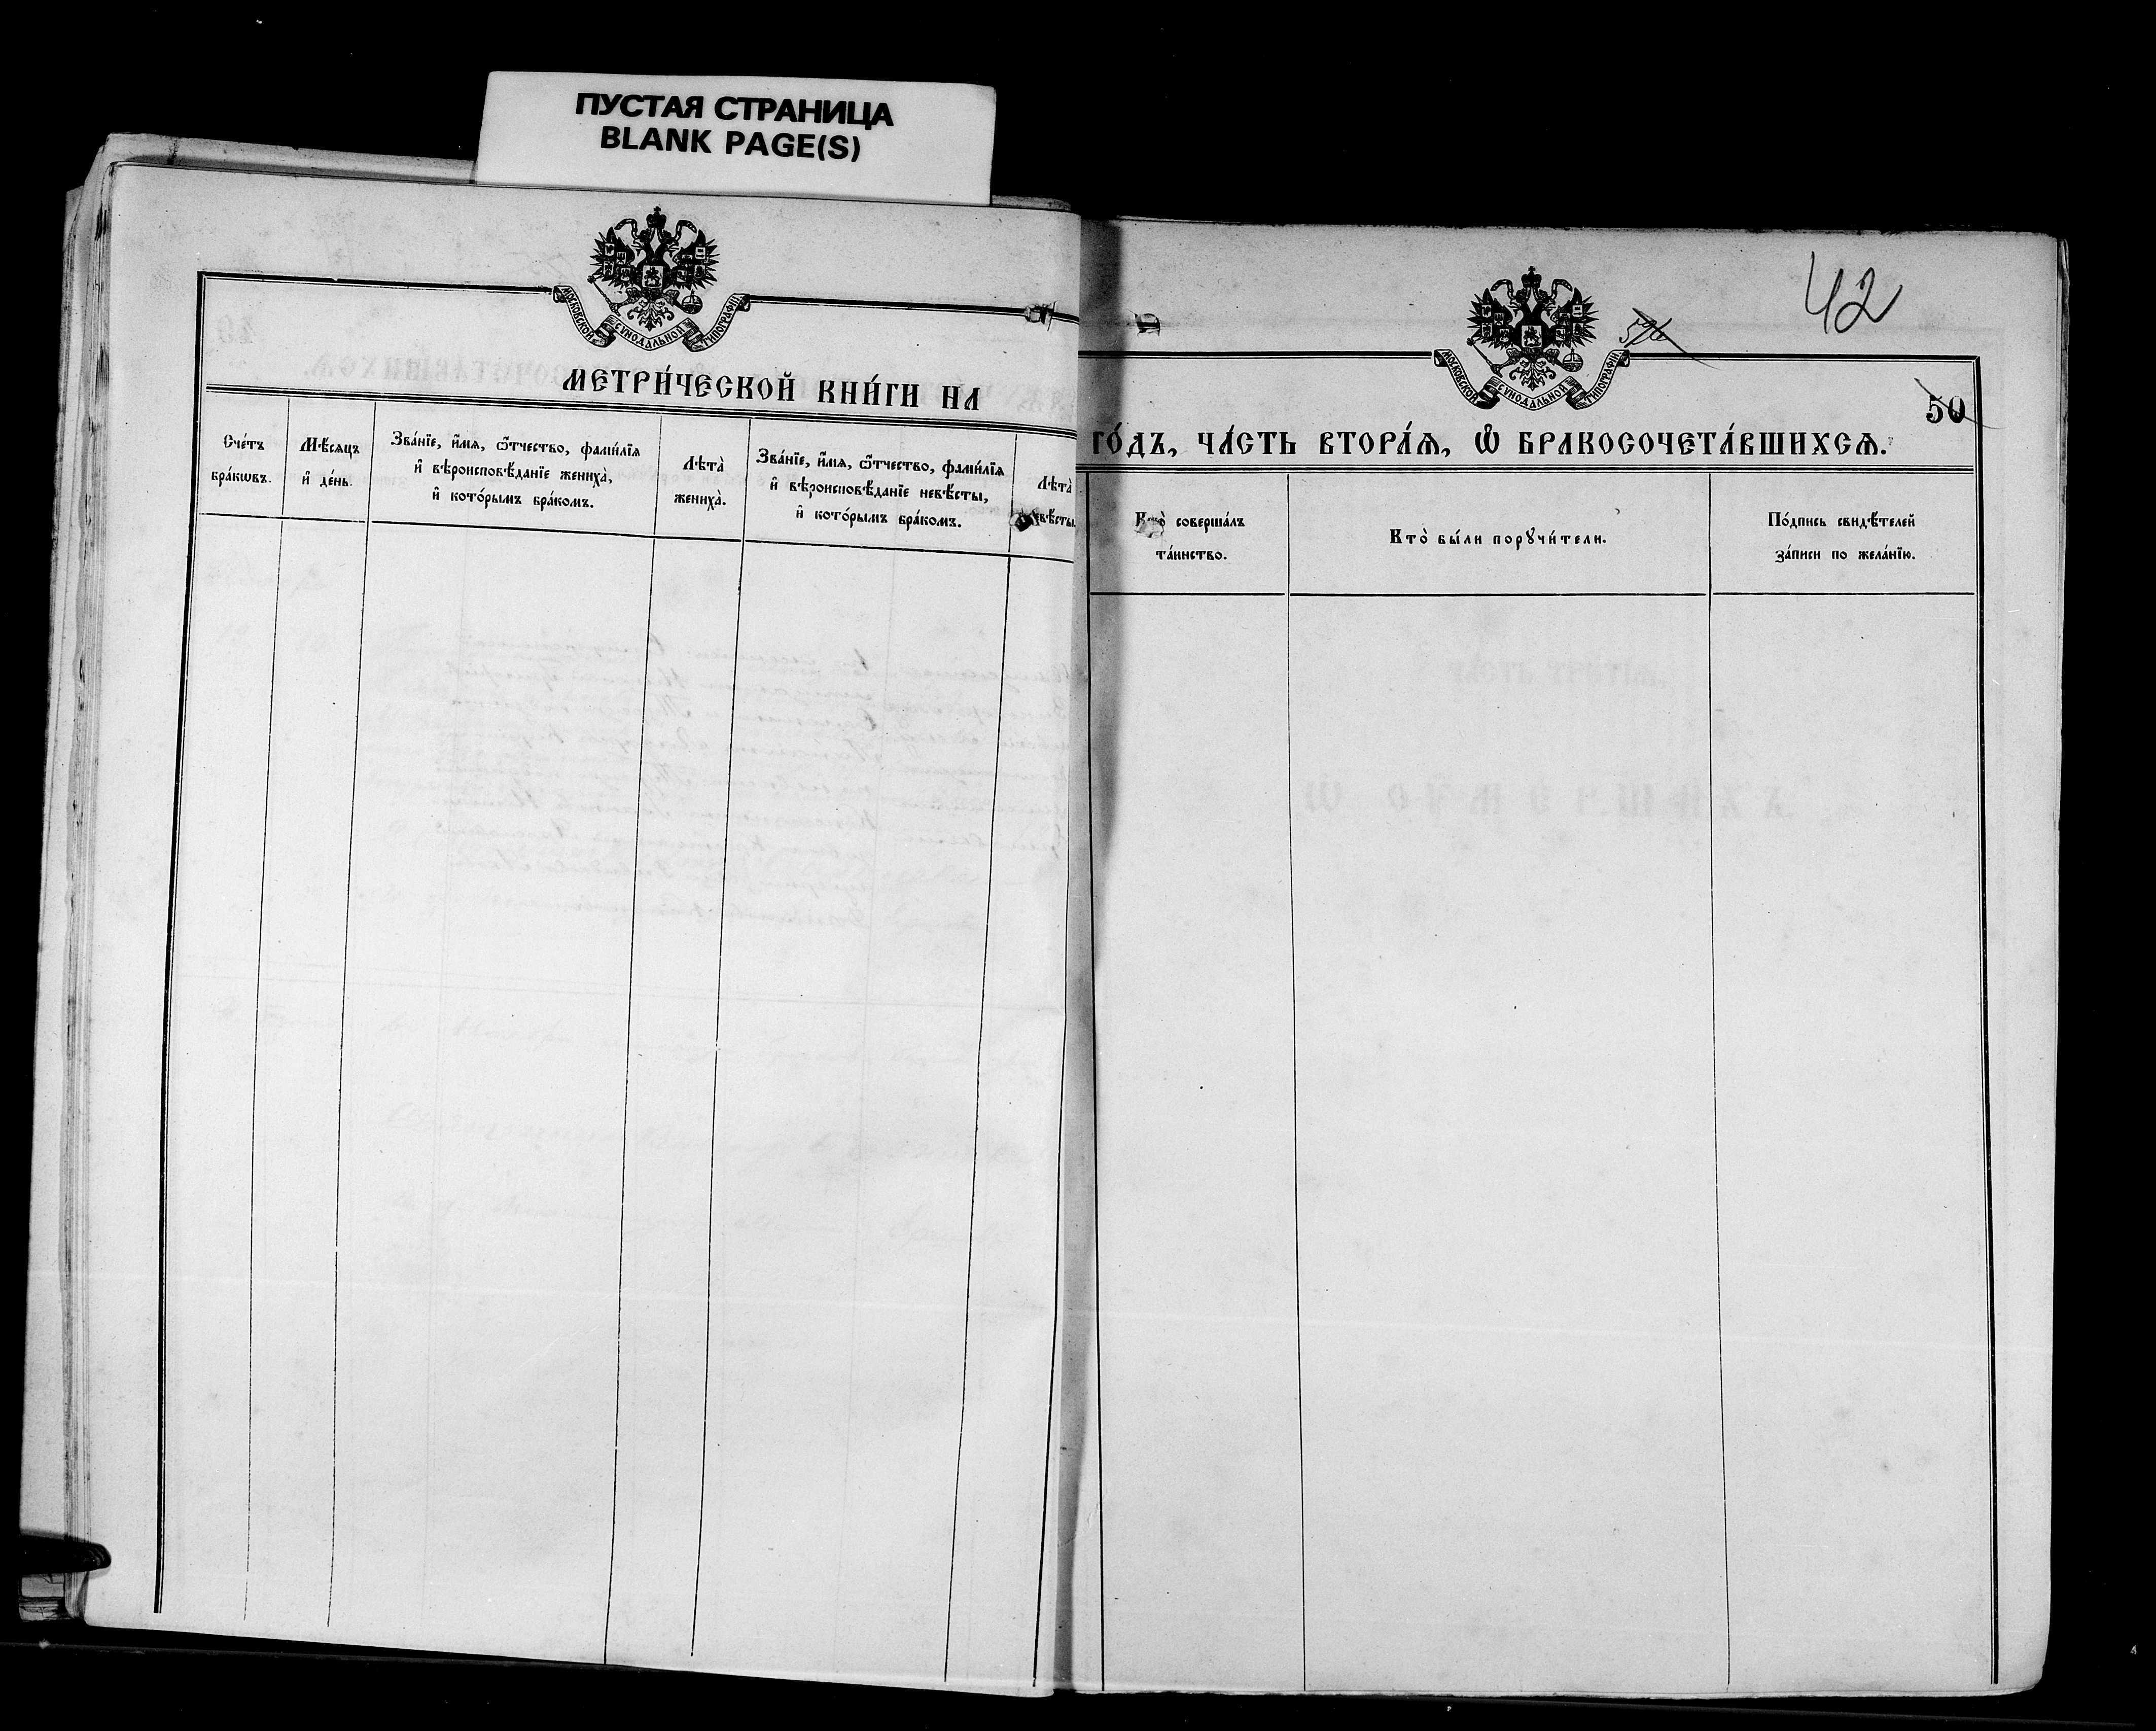 ПУСТАЯ СТРАНИЦА
BLANK PAGE(S)
МОСКОВСКОЙ СѴНОДАЛЬНОЙ ТИПОГРАФІИ
МЕТРИ́ЧЕСКОЙ КНИ́ГИ НА
Сче́тъ
бра́кѡвъ.
Мѣ́сяцъ
и҆ де́нь.
Зва́нїе, и҆́мѧ, ѻ҆́тчество, фами́лїѧ
и҆ вѣроисповѣ́данїе жениха̀,
и҆ кото́рымъ бра́комъ.
Лѣ́та
жениха̀.
Зва́нїе, и҆́мѧ, ѻ҆́тчество, фами́лїѧ
и҆ вѣроисповѣ́данїе невѣ́сты,
и҆ кото́рымъ бра́комъ.
Лѣ́та
вѣ́сты.
42
МОСКОВСКОЙ СѴНОДАЛЬНОЙ ТИПОГРАФІИ
50
ГО́ДЪ, ЧА́СТЬ ВТОРА́Ѧ, Ѡ҆ БРАКОСОЧЕТА́ВШИХСѦ.
Кто̀ соверша́лъ
та́инство.
Кто̀ бы́ли порꙋчи́тели.
По́дпись свидѣ́телей
за́писи по жела́нїю.